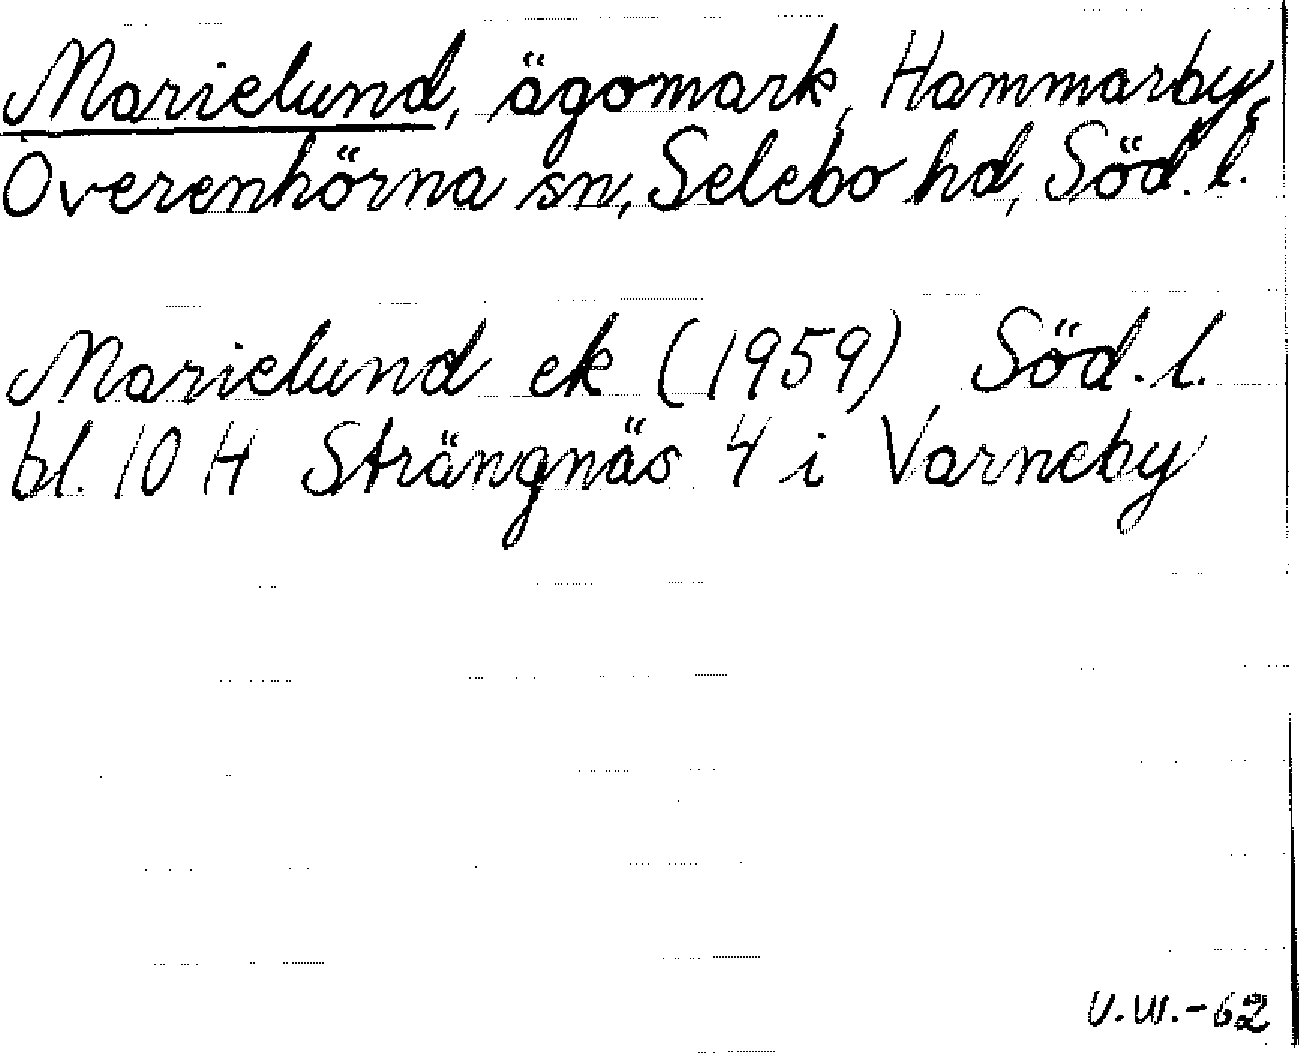 Marielund, ägomark, Hammarby,
Överenhörna sn, Selebo hd, Söd.l.
Marielund ek (1959) Söd.l.
bl. 10 H Strängnäs 4 i Varneby
V.W.-62